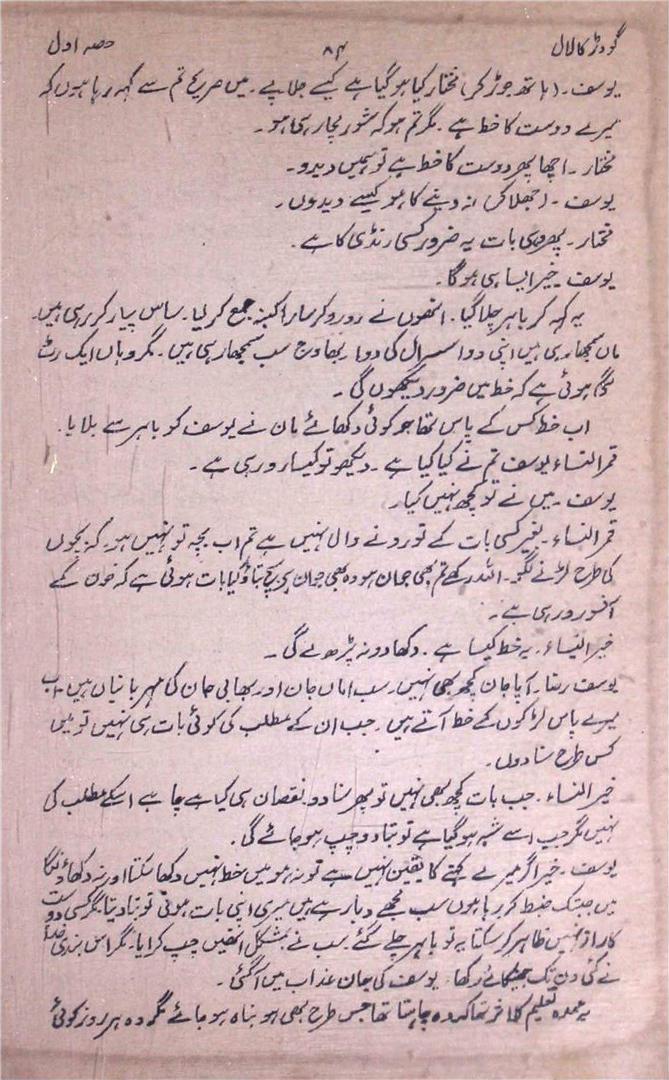 گودڑ کا لال ۸۴ حصہ اول
یوسف۔ (ہاتھ جوڑ کر) مختار کیا ہو گیا ہے کیسے جلاپے۔ میں صریح تم سے کہہ رہا ہوں کہ
میرے دوست کا خط ہے۔ مگر تم ہو کہ شور مچا رہی ہو۔
مختار۔ اچھا پھر دوست کا خط ہے تو ہمیں دیدو۔
یوسف۔ (جھلا کر) نہ دینے کا ہو کیسے دیدوں۔
مختار۔ پھر وہی بات یہ ضرور کسی رنڈی کا ہے۔
یوسف۔ خیر ایسا ہی ہوگا۔
یہ کہہ کر باہر چلا گیا۔ انھوں نے رو رو کر سارا کنبہ جمع کر لیا۔ ساس پیار کر رہی ہیں۔
ماں سمجھا رہی ہیں اپنی ددا سسرال کی ددا بھاوج سب سمجھا رہی ہیں۔ مگر وہاں ایک رٹ
لگی ہوئی ہے کہ خط میں ضرور دیکھوں گی۔
اب خط کس کے پاس تھا جو کوئی دکھائے مان نے یوسف کو باہر سے بلایا۔
قمر النساء یوسف تم نے کیا کیا ہے۔ دیکھو تو کیسا رو رہی ہے۔
یوسف۔ میں نے تو کچھ نہیں کیا۔
قمر النساء۔ بغیر کسی بات کے تو رونے والی نہیں ہے تم اب بچہ تو نہیں ہو۔ کہ بچوں
کی طرح لڑنے لگو۔ اللہ رکھے تم بھی جوان ہو وہ بھی جوان سچ سچ بتاؤ کیا بات ہوئی ہے کہ خون کے
آنسو رو رہی ہے۔
خیر النساء۔ یہ خط کیسا ہے۔ دکھا دو نہ پڑھ لے گی۔
یوسف رضا۔ آپا جان کچھ بھی نہیں۔ سب اماں جان اور بھابی جان کی مہربانیاں ہیں۔ اب
میرے پاس لڑکوں کے خط آتے ہیں۔ جب ان کے مطلب کی کوئی بات ہی نہیں تو میں
کس طرح سنا دوں۔
خیر النساء۔ جب بات کچھ بھی نہیں تو پھر سنا دو۔ نقصان ہی کیا ہے چاہے اسکے مطلب کی
نہیں مگر جب اسے شبہ ہو گیا ہے تو بتا دو چپ ہو جائے گی۔
یوسف۔ خیر اگر میرے کہنے کا یقین نہیں ہے تو نہ ہو میں خط نہیں دکھا سکتا اور نہ دکھاؤنگا
میں جتنک ضبط کر رہا ہوں سب مجھے دبا رہے ہیں میری اپنی بات ہوتی تو بتا دیتا۔ مگر کسی دوست
کا راز نہیں ظاہر کر سکتا یہ تو باہر چلے گئے۔ سب نے بمشکل انھیں چپ کرایا۔ مگر اس بندی خدا
نے کئی دن تک جھٹکائے رکھا۔ یوسف کی جان عذاب میں آ گئی۔
یہ عمدہ تعلیم کا اثر تھا کہ وہ چاہتا تھا جس طرح بھی ہو نباہ ہو جائے مگر وہ ہر روز کوئی